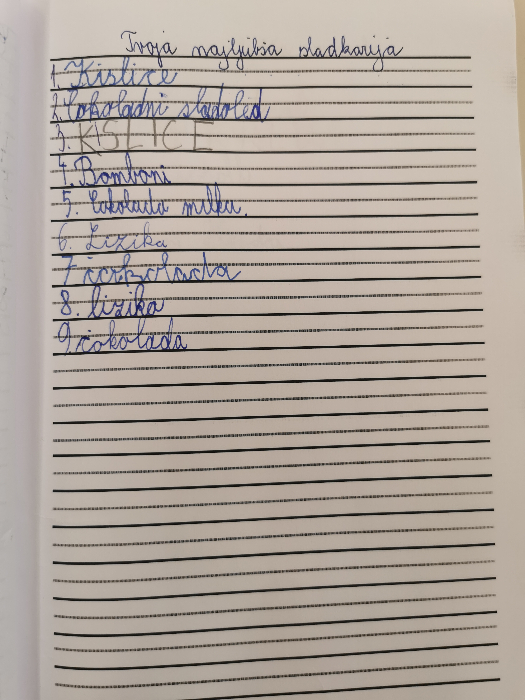 Tvoja najljubša sladkarija
1. Kislice
2. Čokoladni sladoled
3. KISLICE
4. Bomboni
5. Čokolada milka.
6. Lizika
7 čokolada
8. lizika
9. čokolada